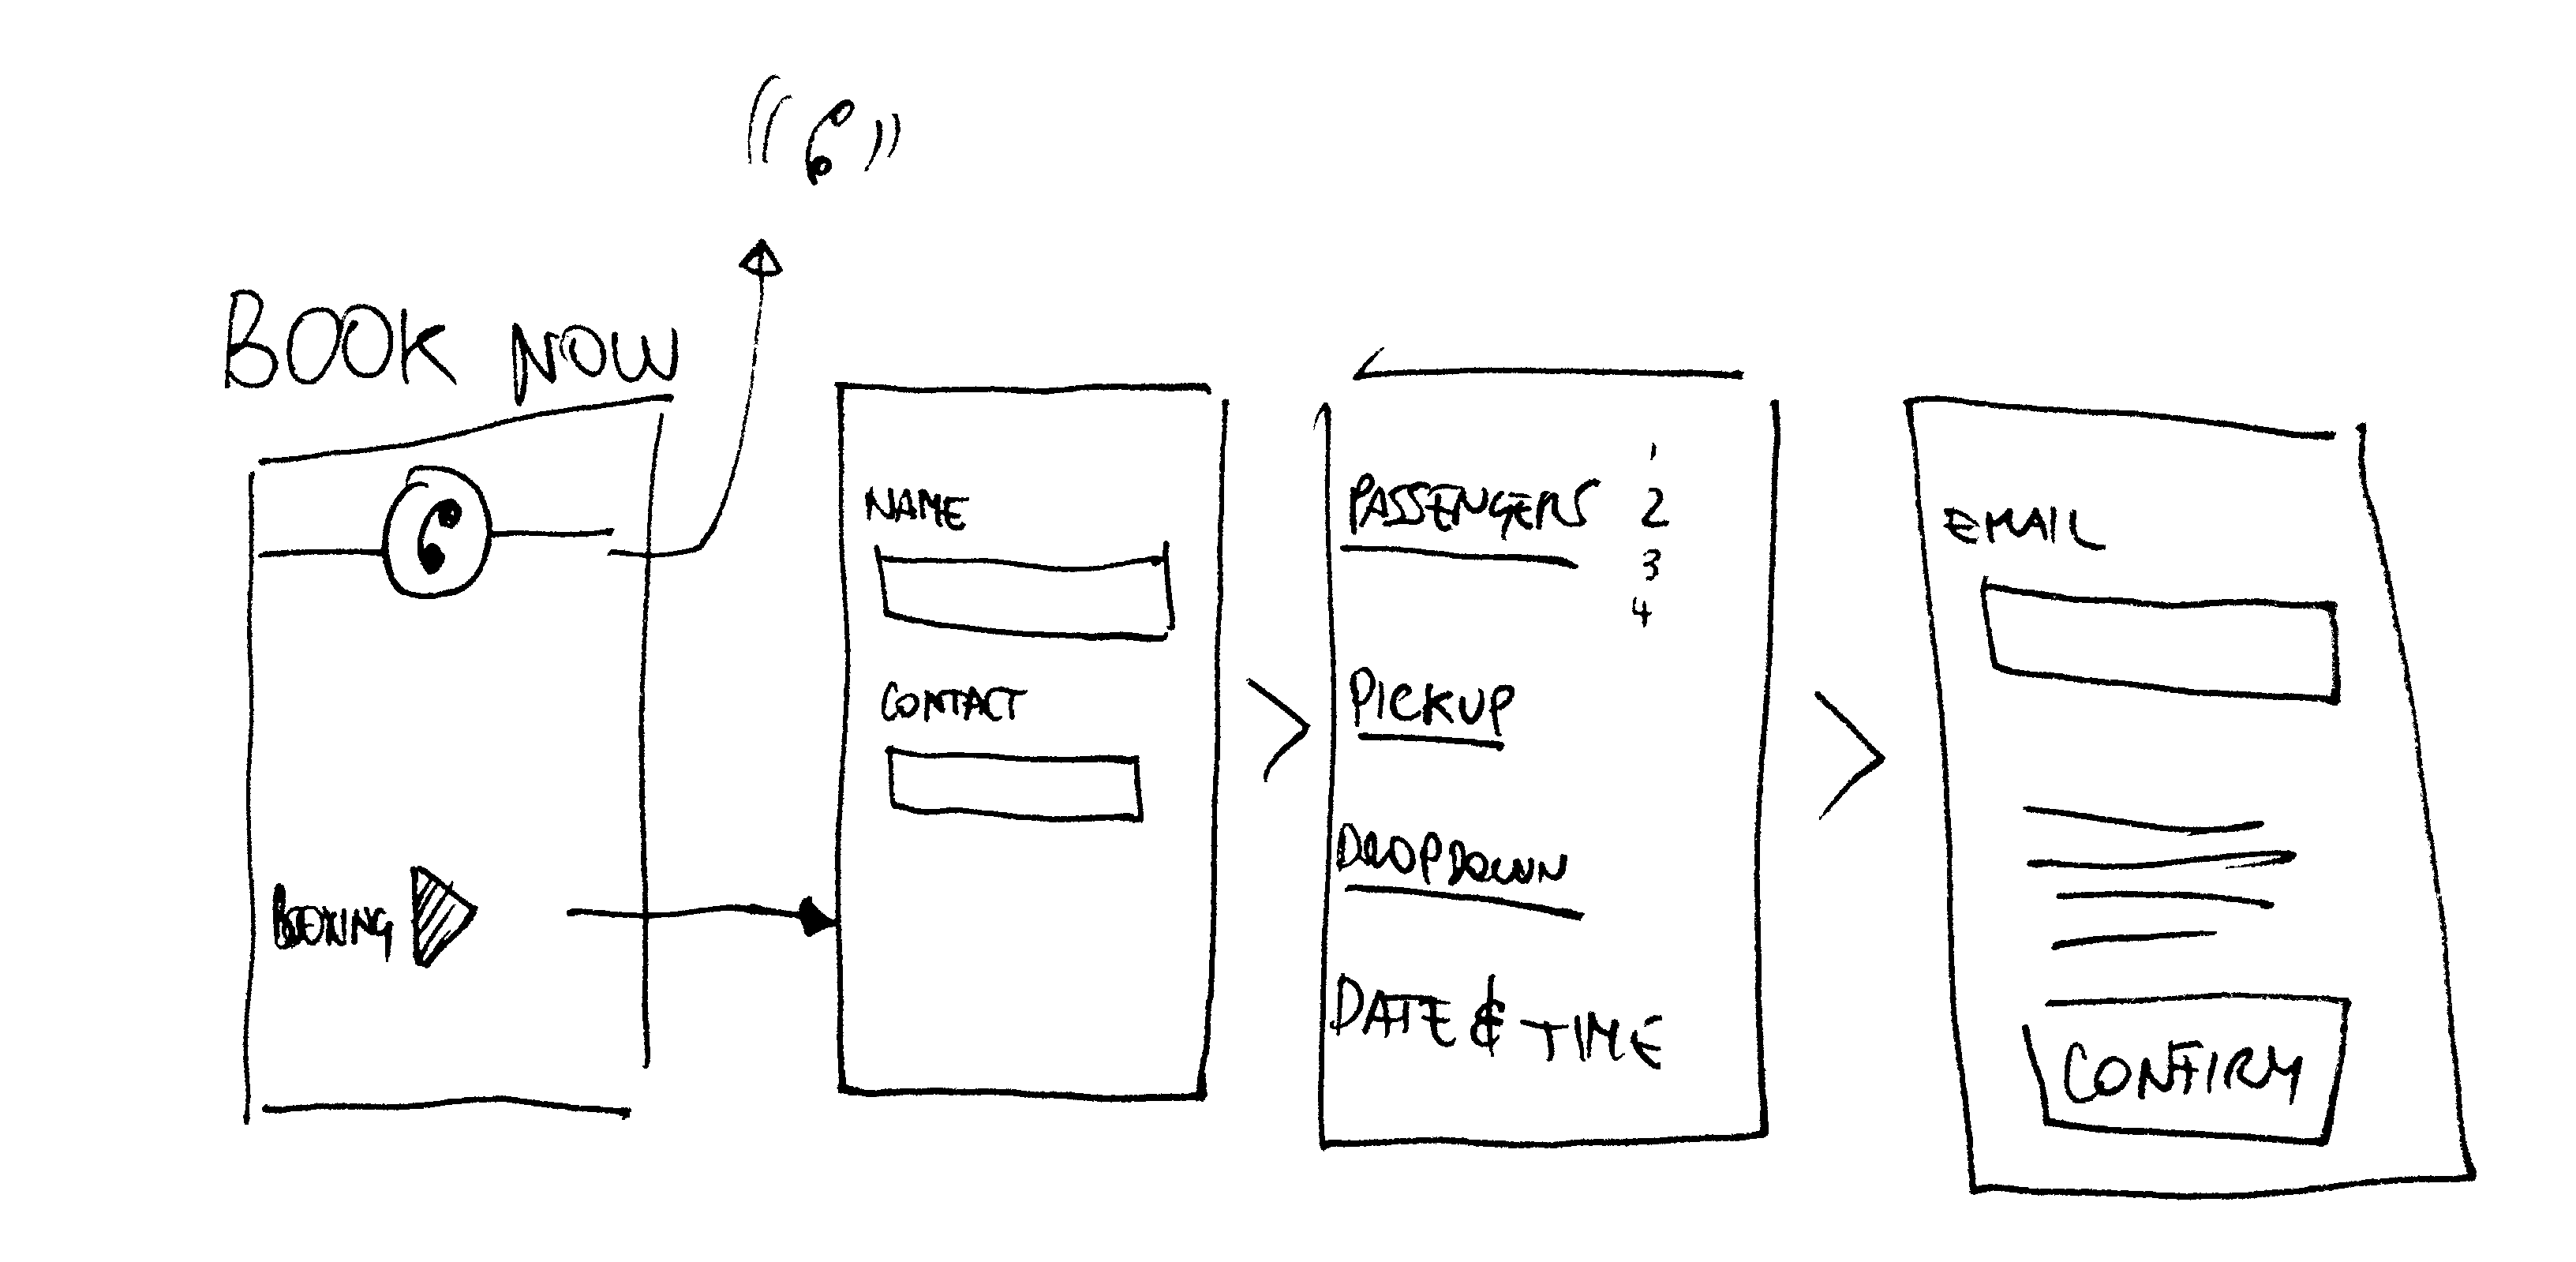 BOOK NOW
BOOKING
NAME
CONTACT
PASSENGERS
1
2
3
4
PICKUP
DROPDOWN
DATE & TIME
EMAIL
CONFIRM